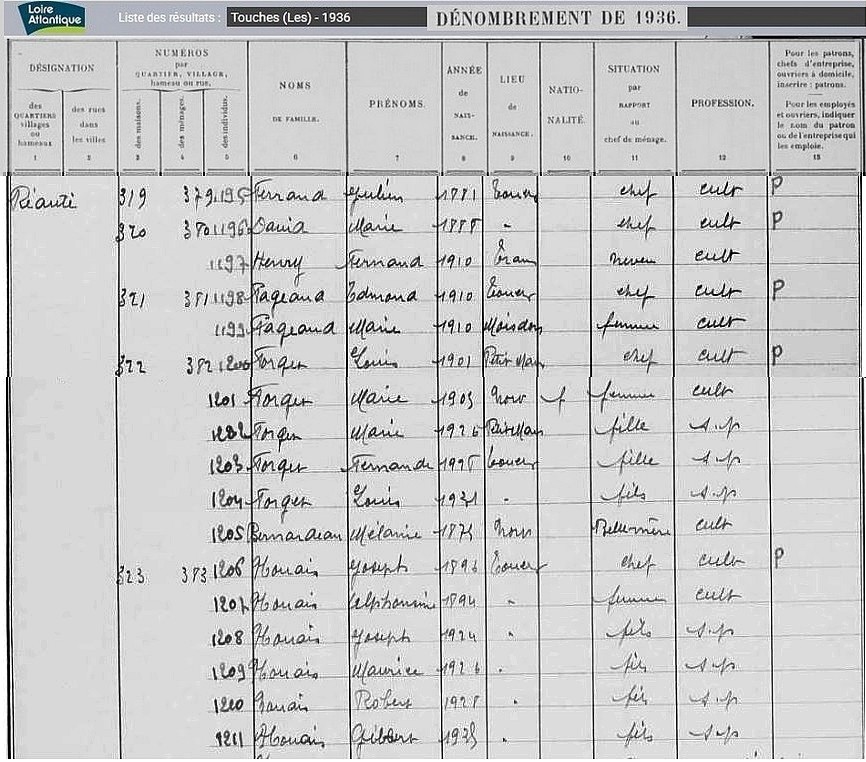 Loire
Atlantique
Liste des résultats : Touches (Les) - 1936
DÉNOMBREMENT DE 1936.
DÉSIGNATION
des QUARTIERS villages ou hameaux
1
des rues dans les villes
2
NUMÉROS par QUARTIER, VILLAGE, hameau ou rue.
des maisons.
3
des ménages.
4
des individus.
5
NOMS DE FAMILLE.
6
PRÉNOMS.
7
ANNÉE de NAIS- SANCE.
8
LIEU de NAISSANCE.
9
NATIO- NALITÉ.
10
SITUATION par RAPPORT au chef de ménage.
11
PROFESSION.
12
Pour les patrons, chefs d'entreprise, ouvriers à domicile, inscrire : patrons.
Pour les employés et ouvriers, indiquer le nom du patron ou de l'entreprise qui les emploie.
13
319 379 1195 Ferrand Julien 1881 chef cult P
320 380 1196 David Marie chef cult P
1197 Henry Fernand 1910 neveu cult
321 381 1198 Pageaud Edmond 1910 chef cult P
1199 Pageaud Marie 1910 Moisdon femme cult
322 382 1200 Forget Louis 1901 Petit Mars chef cult P
1201 Forget Marie 1905 f femme cult
1202 Forget Marie 1926 Petit Mars fille s.p
1203 Forget Fernande fille s.p
1204 Forget Louis 1931 " fils s.p
1205 Bernardeau Mélanie Belle-mère cult
323 383 1206 Houais Joseph chef cult P
1207 Houais Alphonsine 1894 " femme cult
1208 Houais Joseph 1924 " fils s.p
1209 Houais Maurice 1926 " fils s.p
1210 Houais Robert 1928 " fils s.p
1211 Houais Gilbert " fils s.p